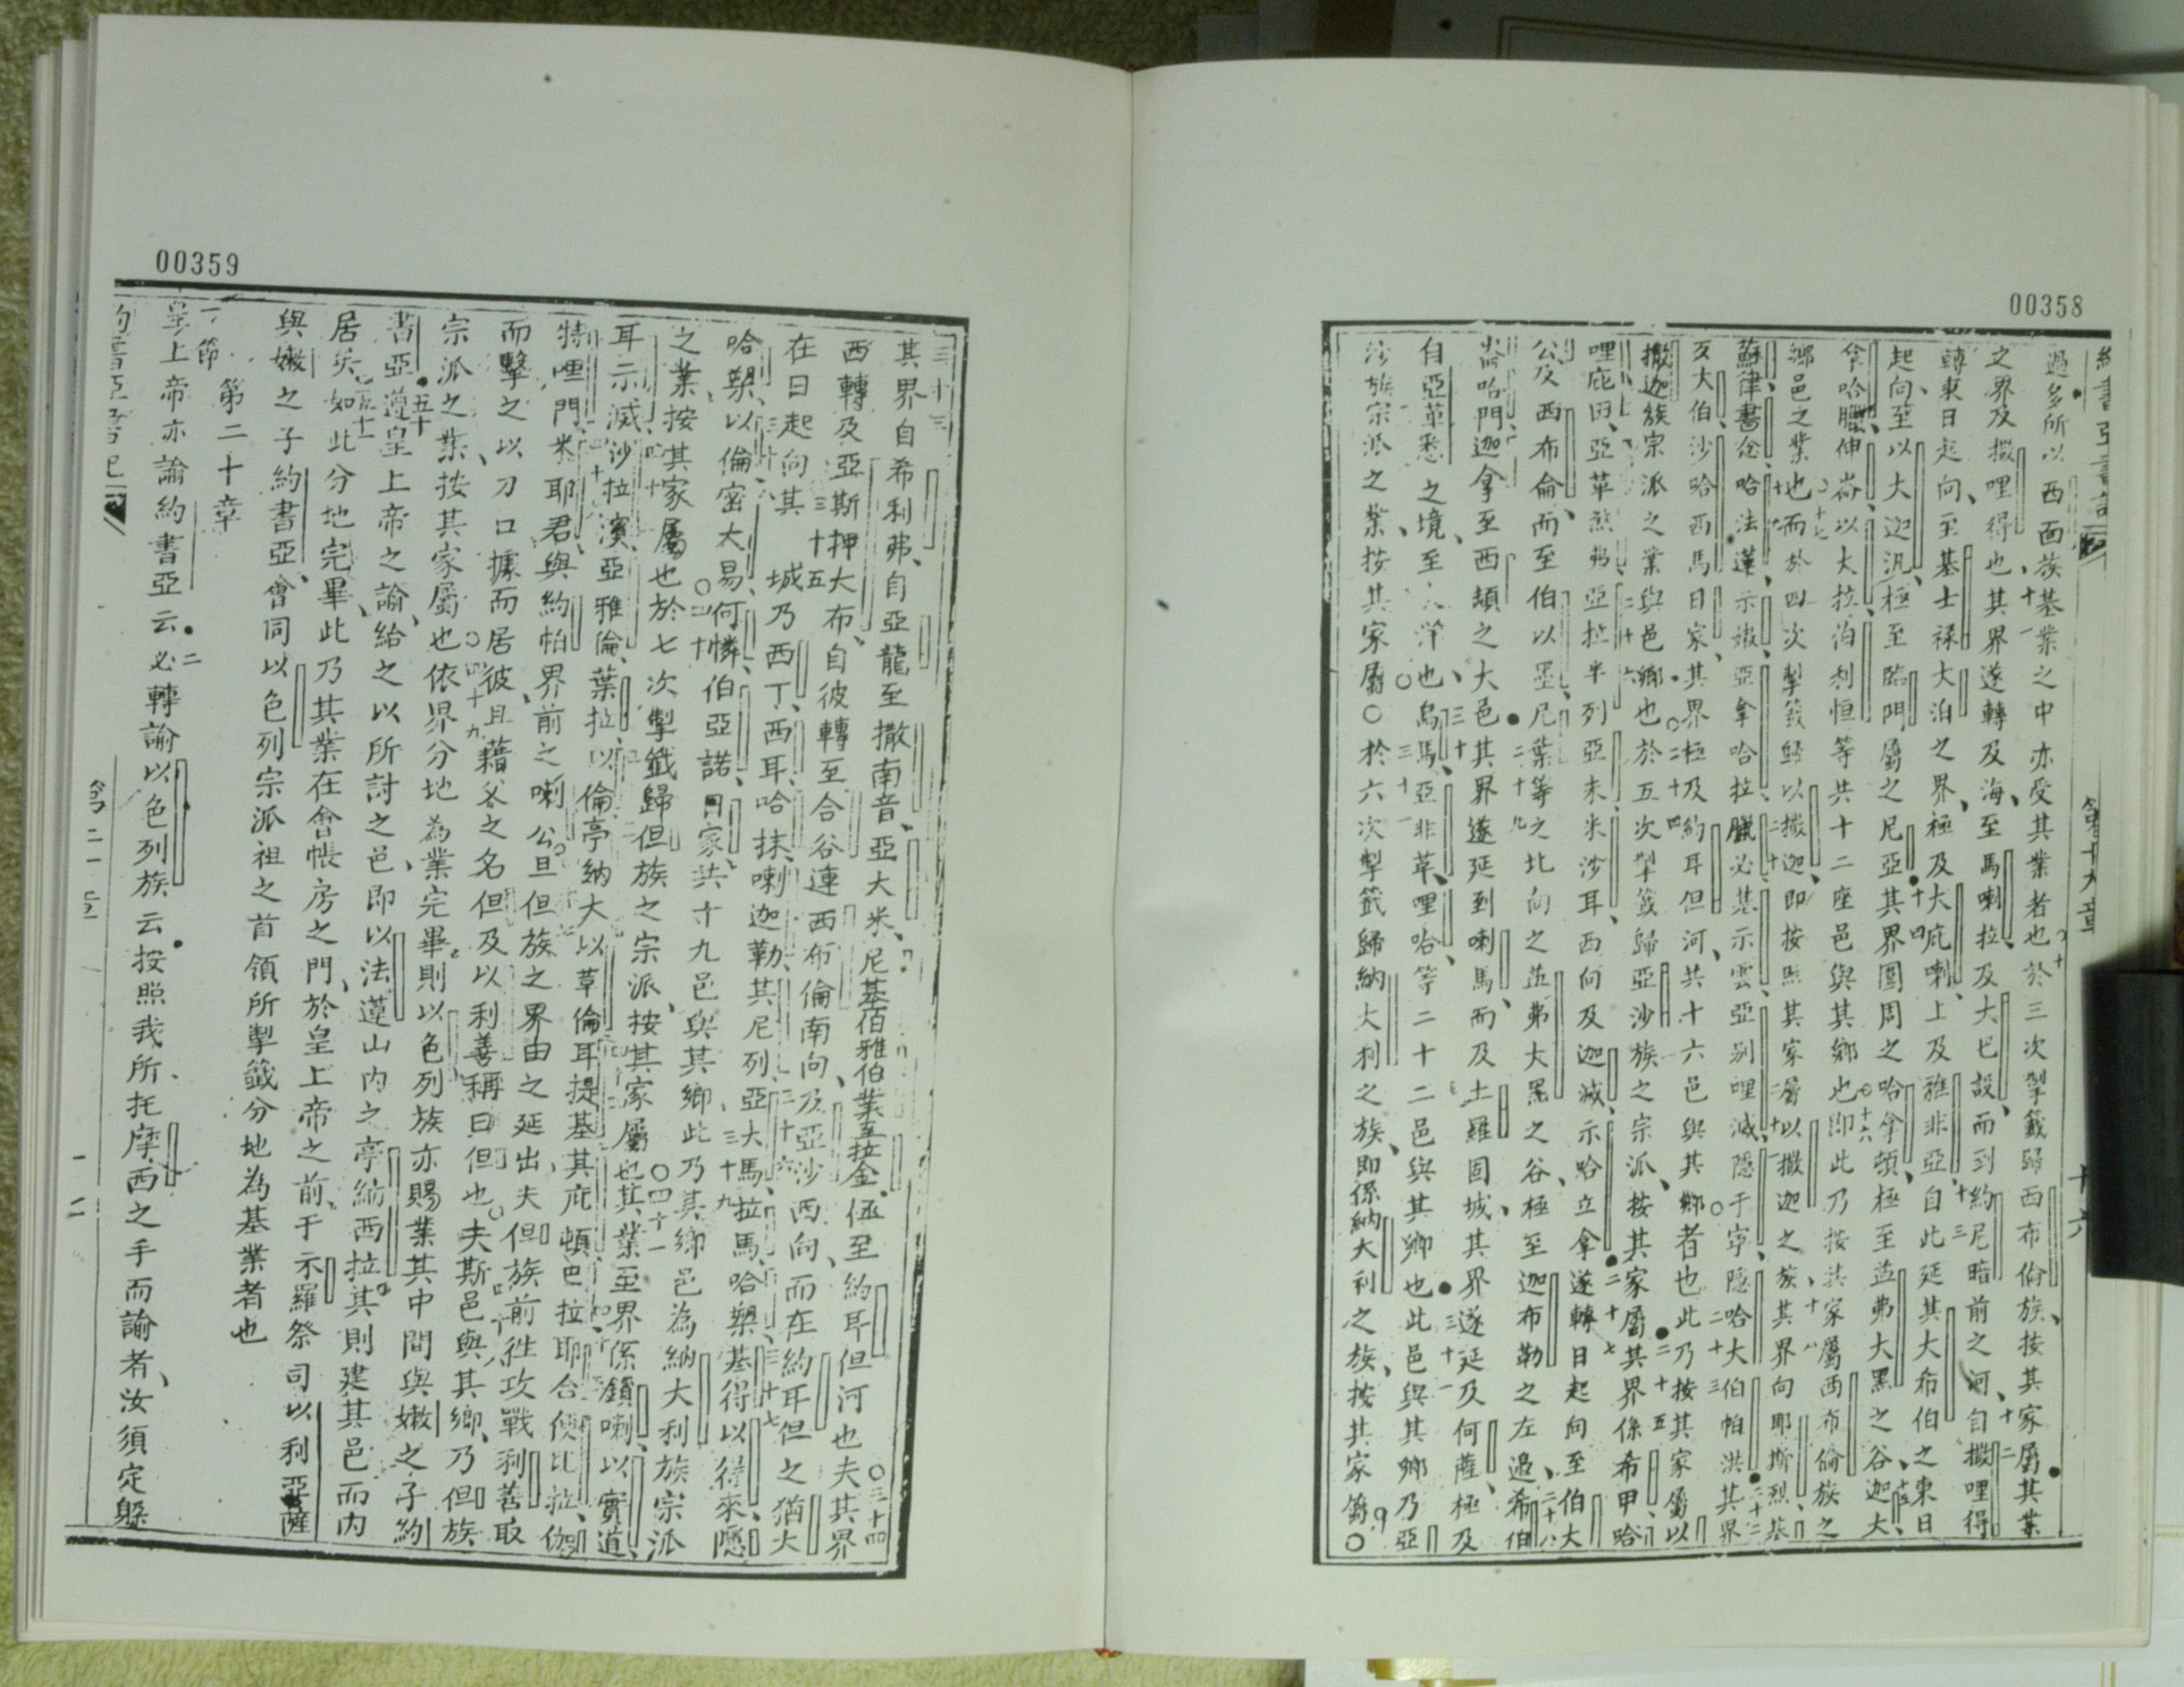 00358
過多所以西面族基業之中亦受其業者也於三次掣籤歸西布倫族按其家屬其業
之界及撒哩得也其界遂轉及海至馬喇拉及大巴設而到約尼暗前之河自撒哩得
轉東日起向至基士祿大泊之界極及大庇喇上及雅非亞自此延其大布伯之東日
起向至以大迦汎極至臨門屬之尼亞其界圍周之哈拿頓極至益弗大黑之谷迦大
以大拉伯利恒等共十二座邑與其鄉也即此乃按其家屬西布倫族之
鄉邑之業也而於四次掣籤歸以撒迦即按照其家屬以撒迦之族其界向耶斯烈基
蘇律書念哈法蓮示嫩亞拿哈拉臘必基示雲亞別哩減隱于寜隱哈大伯帕洪其界
及大伯沙哈西馬日家其界極及約耳但河共十六邑與其鄉者也此乃按其家屬以
撒迦族宗派之業與邑鄉也於五次掣籤歸亞沙族之宗派按其家屬其界係希甲哈
哩庇田亞革煞弗亞拉半列亞末米沙耳西向及迦減示哈立拿遂轉日起向至伯大
公及西布倫而至伯以墨尼葉等之北向之益弗大黑之谷極至迦布勒之左過希伯
崙哈門迦拿至西頓之大邑其界遂延到喇馬而及土羅固城其界遂延及何薩極及
自亞革悉之境至大洋也烏馬亞非革哩哈等二十二邑與其鄉也此邑與其鄉乃亞
沙族宗派之業按其家屬○於六次掣籤歸納大利之族即係納大利之族按其家屬○
00359
其界自希利弗自亞龍至撒南音亞大米尼基伯雅伯業至拉金極至約耳但河也夫其界
西轉及亞斯押大布自彼轉至合谷連西布倫南向及亞沙西向而在約耳但之猶大
在日起向其城乃西丁西耳哈抹喇迦勒其尼列亞大馬拉馬哈槊基得以得來隱
哈槊以倫密大易何憐伯亞諾日家共十九邑與其鄉此乃其鄉邑為納大利族宗派
之業按其家屬也於七次掣籤歸但族之宗派按其家屬也其業至界係鎖喇以實道
耳示滅沙拉濱亞雅倫葉拉以倫亭納大以革倫耳提基其庇頓巴拉耶合便比拉伽
特哩門米耶君與約帕界前之喇公旦但族之界由之延出夫但族前徃攻戰利善取
而擊之以刀口據而居彼且藉父之名但及以利善稱曰但也夫斯邑與其鄉乃但族
宗派之業按其家屬也依界分地為業完畢則以色列族亦賜業其中間與嫩之子約
書亞遵皇上帝之諭給之以所討之邑即以法蓮山內之亭納西拉其則建其邑而內
居矣如此分地完畢此乃其業在會帳房之門於皇上帝之前于示羅祭司以利亞薩
與嫩之子約書亞會同以色列宗派祖之首領所掣籤分地為基業者也
一節 第二十章
皇上帝亦諭約書亞云必轉諭以色列族云按照我所托摩西之手而諭者汝須定躲